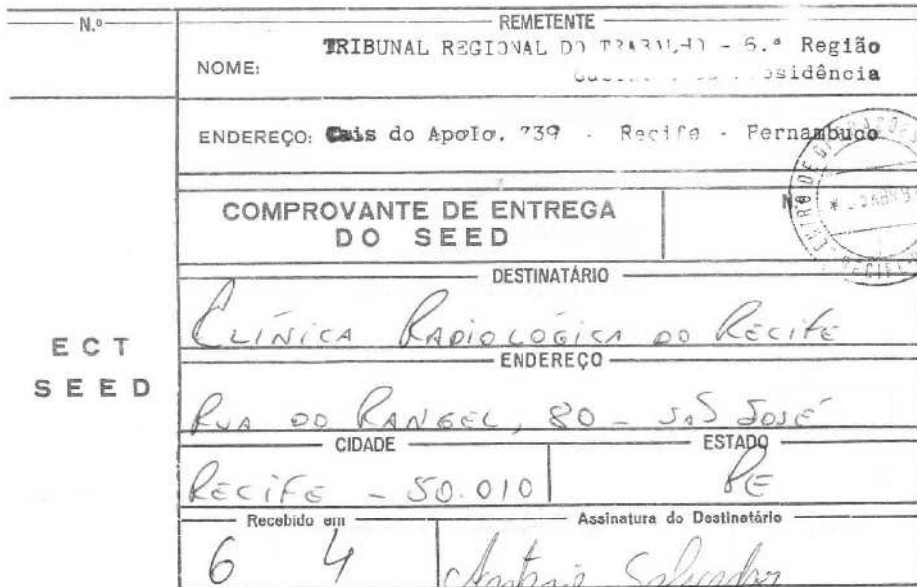 N.º
REMETENTE
NOME: TRIBUNAL REGIONAL DO TRABALHO - 6.ª Região
Presidência
ENDEREÇO: Cais do Apolo, 739 - Recife - Pernambuco
COMPROVANTE DE ENTREGA
DO SEED
N.º
RECIFE
DESTINATÁRIO
CLÍNICA RADIOLÓGICA DO RECIFE
ECT
SEED
ENDEREÇO
RUA DO RANGEL, 80 - SÃO JOSÉ
CIDADE
ESTADO
RECIFE - 50.010
PE
Recebido em
Assinatura do Destinatário
6 4
Antonio Salvador